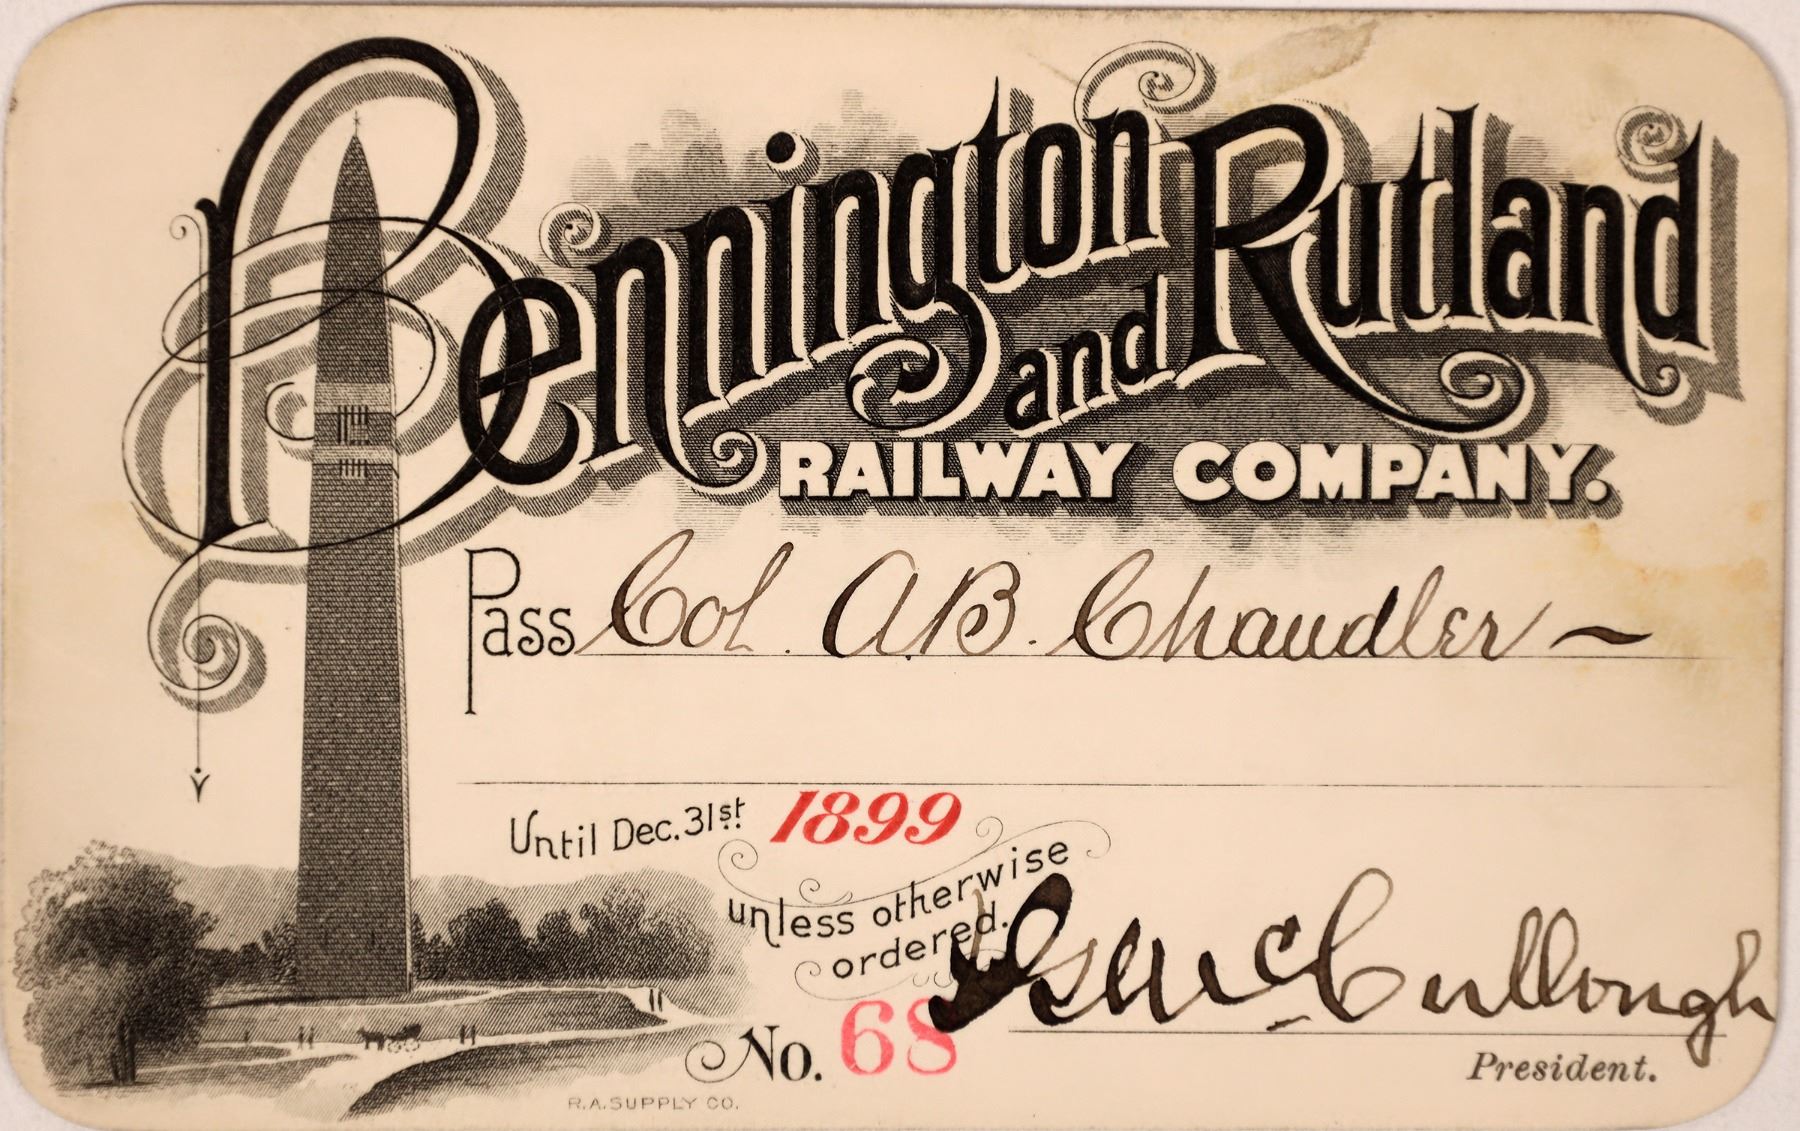 Bennington
and Rutland
RAILWAY COMPANY.
Pass Col. A.B. Chandler ~
Until Dec. 31st 1899
unless otherwise
ordered.
McCullough
No. 68
President.
R.A. SUPPLY CO.